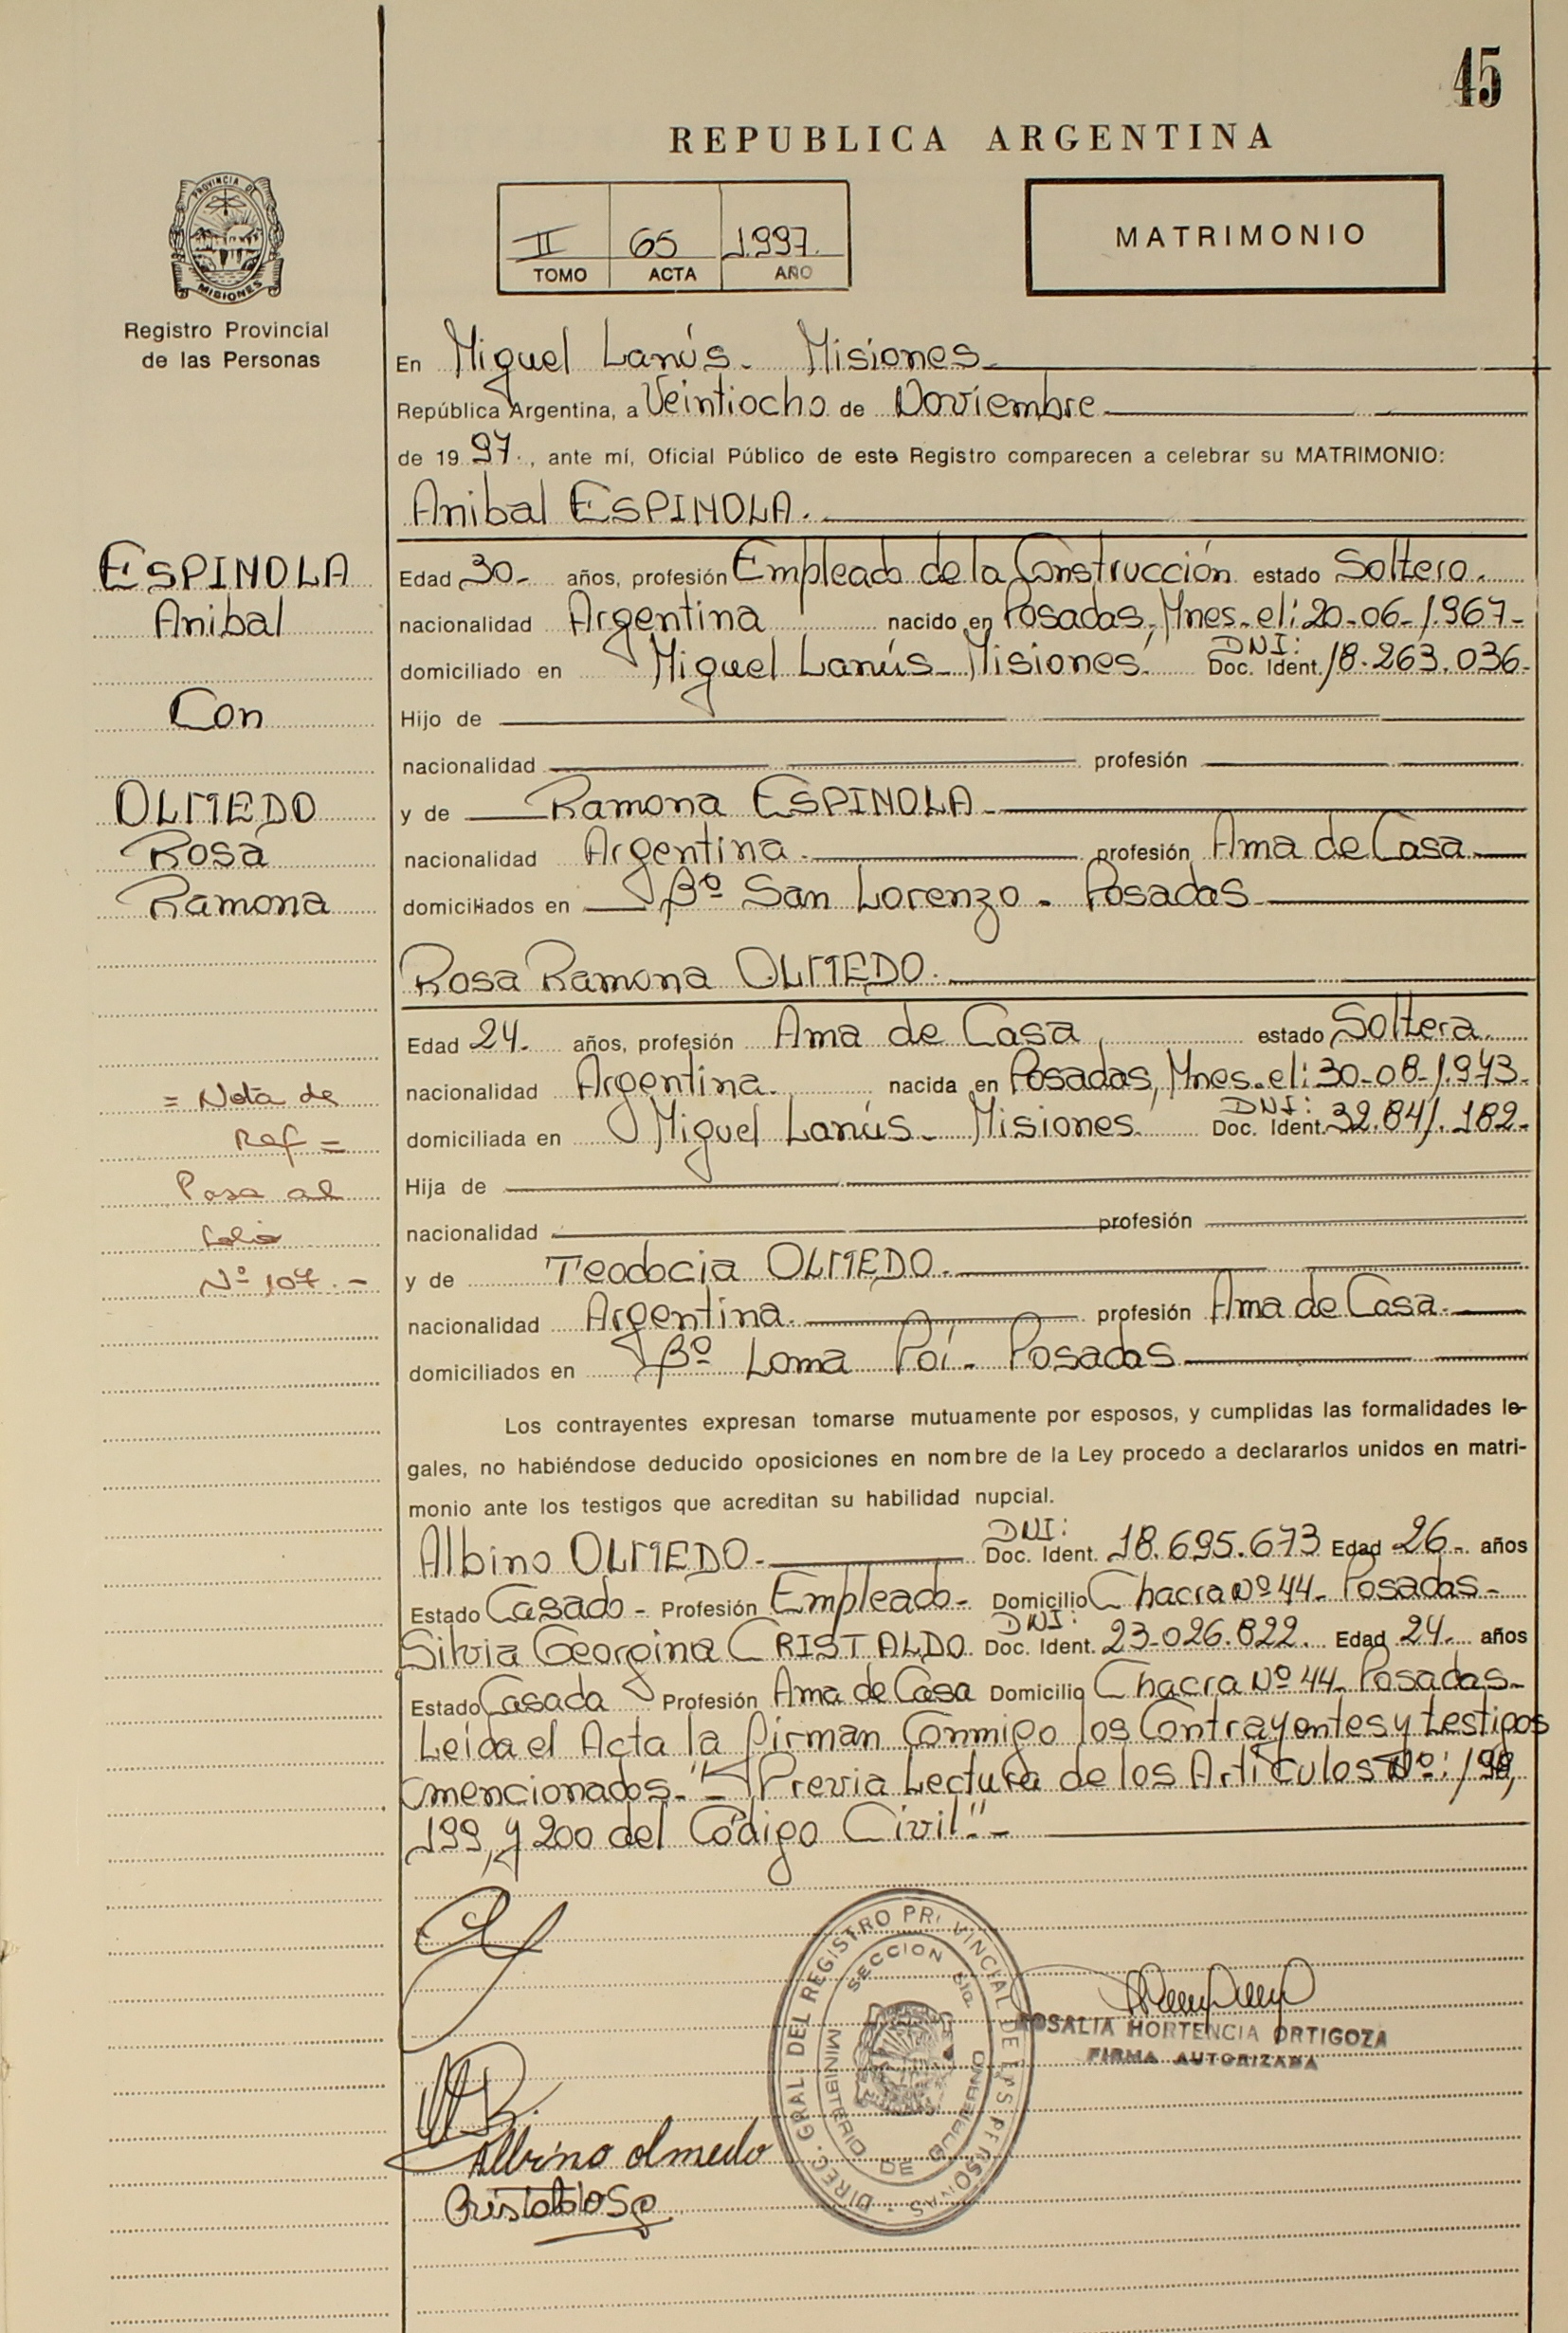 45
REPUBLICA ARGENTINA
PROVINCIA DE
MISIONES
Registro Provincial
de las Personas
II 65 1.997.
TOMO ACTA AÑO
MATRIMONIO
En Miguel Lanús - Misiones
República Argentina, a Veintiocho de Noviembre
de 19 97., ante mí, Oficial Público de este Registro comparecen a celebrar su MATRIMONIO:
Anibal ESPINOLA.
ESPINOLA
Anibal
Con
OLMEDO
Rosa
Ramona
Edad 30- años, profesión Empleado de la Construcción estado Soltero.
nacionalidad Argentina nacido en Posadas, Mnes. el: 20-06-1.967-
domiciliado en Miguel Lanús - Misiones. DNI: Doc. Ident. 18.263.036-
Hijo de
nacionalidad profesión
y de Ramona ESPINOLA
nacionalidad Argentina. profesión Ama de Casa
domiciliados en Bº San Lorenzo - Posadas
Rosa Ramona OLMEDO.
Edad 24. años, profesión Ama de Casa estado Soltera.
nacionalidad Argentina. nacida en Posadas, Mnes. el: 30-08-1.973-
domiciliada en Miguel Lanús - Misiones DNI: Doc. Ident. 32.841.182-
= Nota de
Ref =
Pasa al
folio
Nº 107.-
Hija de
nacionalidad profesión
y de Teodocia OLMEDO.
nacionalidad Argentina. profesión Ama de Casa.
domiciliados en Bº Loma Poí - Posadas
Los contrayentes expresan tomarse mutuamente por esposos, y cumplidas las formalidades le-
gales, no habiéndose deducido oposiciones en nombre de la Ley procedo a declararlos unidos en matri-
monio ante los testigos que acreditan su habilidad nupcial.
Albino OLMEDO- DNI: Doc. Ident. 18.695.673 Edad 26- años
Estado Casado - Profesión Empleado- Domicilio Chacra Nº 44- Posadas-
Silvia Georgina CRISTALDO DNI: Doc. Ident. 23-026.822. Edad 24. años
Estado Casada Profesión Ama de Casa Domicilio Chacra Nº 44- Posadas-
Leida el Acta la firman Conmigo los Contrayentes y testigos
mencionados.- "Previa Lectura de los Artículos Nº: 198,
199, y 200 del Código Civil"-
DIREC. GRAL. DEL REGISTRO PROVINCIAL DE LAS PERSONAS
MINISTERIO DE GOBIERNO
SECCION
ROSALIA HORTENCIA ORTIGOZA
FIRMA AUTORIZADA
Albino Olmedo
Cristaldo SG